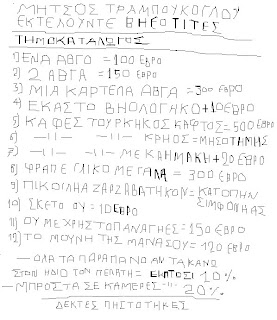 ΜΗΤΣΟΣ ΤΡΑΜΠΟΥΚΟΓΛΟΥ
ΕΚΤΕΛΟΥΝΤΕ ΒΗΕΟΤΙΤΕΣ
ΤΗΜΟΚΑΤΑΛΟΓΟΣ
1) ΕΝΑ ΑΒΓΟ = 100 ΕΒΡΟ
2) 2 ΑΒΓΑ = 150 ΕΒΡΟ
3) ΜΙΑ ΚΑΡΤΕΛΑ ΑΒΓΑ = 300 ΕΒΡΟ
4) ΕΚΑΣΤΟ ΒΗΟΛΟΓΗΚΟ + 10 ΕΒΡΟ
5) ΚΑΦΕΣ ΤΟΥΡΚΗΚΟΣ ΚΑΦΤΟΣ = 500 ΕΒΡΟ
6) -11- -11- ΚΡΗΟΣ = ΜΗΣΟΤΗΜΗΣ
7) -11- -11- ΜΕ ΚΑΗΜΑΚΗ + 20 ΕΒΡΟ
8) ΦΡΑΠΕ ΓΛΙΚΟ ΜΕΓΑΛΑ = 300 ΕΒΡΟ
9) ΠΙΚΟΙΛΗΑ ΖΑΡΖΑΒΑΤΗΚΟΝ = ΚΑΤΟΠΗΝ ΣΙΜΦΟΝΗΑΣ
10) ΣΚΕΤΟ ΟΥ = 10 ΕΒΡΟ
11) ΟΥ ΜΕ ΧΡΗΣΤΟΠΑΝΑΓΗΕΣ = 150 ΕΒΡΟ
12) ΤΟ ΜΟΥΝΗ ΤΗΣ ΜΑΝΑΣΟΥ = 120 ΕΒΡΟ
- ΟΛΑ ΤΑ ΠΑΡΑΠΑΝΟ ΑΝ ΤΑ ΚΑΝΟ
ΣΤΟΝ ΗΔΙΟ ΤΟΝ ΠΕΛΑΤΗ = ΕΚΠΟΣΙ 10%
- ΜΠΡΟΣΤΑ ΣΕ ΚΑΜΕΡΕΣ -11- 20%
ΔΕΚΤΕΣ ΠΗΣΤΟΤΗΚΕΣ